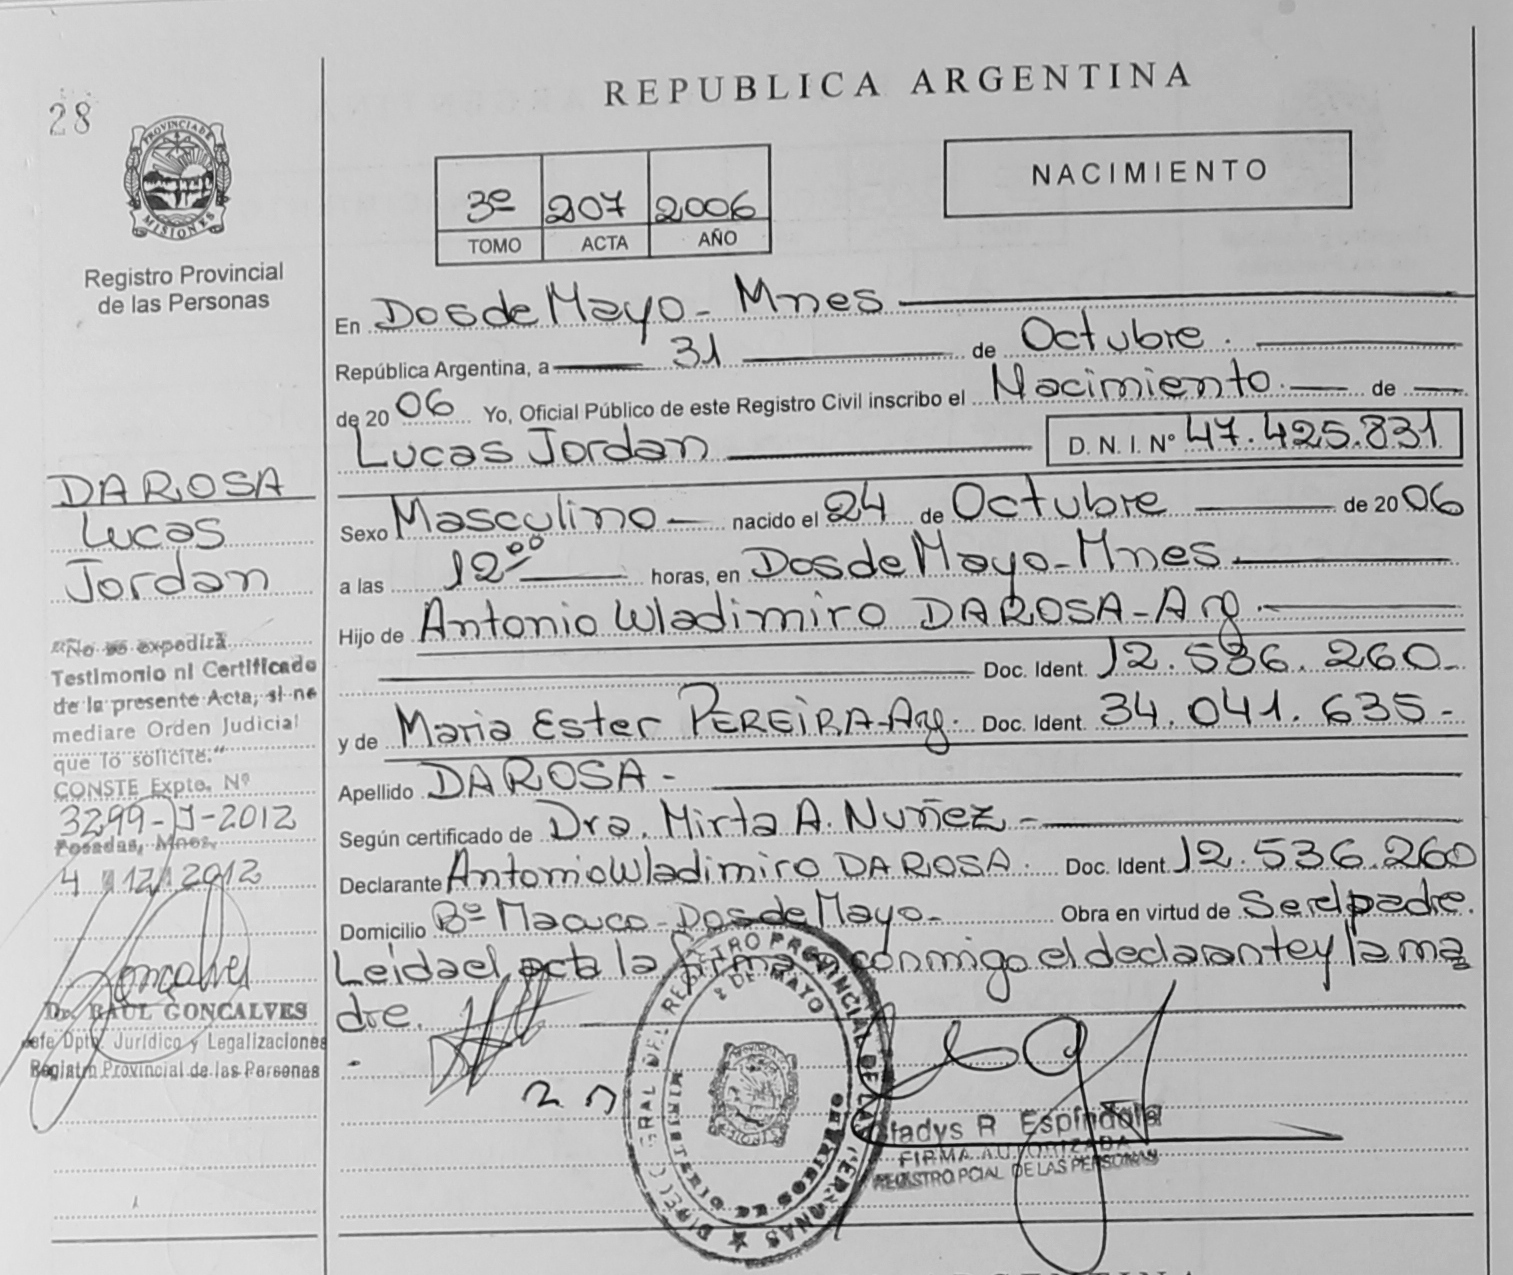 28
PROVINCIA DE
MISIONES
Registro Provincial
de las Personas
REPUBLICA ARGENTINA
3º 207 2006
TOMO ACTA AÑO
NACIMIENTO
En Dos de Mayo - Mnes
República Argentina, a 31 de Octubre.
de 20 06 Yo, Oficial Público de este Registro Civil inscribo el Nacimiento. de
Lucas Jordan D. N. I. Nº 47.425.831
Sexo Masculino nacido el 24 de Octubre de 20 06
a las 12 00 horas, en Dos de Mayo - Mnes
Hijo de Antonio Wladimiro DAROSA - Arg.
Doc. Ident. 12.536.260-
y de Maria Ester PEREIRA-Arg. Doc. Ident. 34.041.635-
Apellido DAROSA -
Según certificado de Dra. Mirta A. Nuñez -
Declarante Antonio Wladimiro DAROSA. Doc. Ident. 12.536.260
Domicilio Bº Macuco - Dos de Mayo - Obra en virtud de Ser el padre.
Leida el acta la firma conmigo el declarante y la ma
dre.
DAROSA
Lucas
Jordan
"No se expedirá
Testimonio ni Certificado
de la presente Acta, si no
mediare Orden Judicial
que lo solicite."
CONSTE Expte. Nº
3299-J-2012
Posadas, Mnes.
4 12 2012
Goncalves
Dr. RAUL GONCALVES
Jefe Dpto. Jurídico y Legalizaciones
Registro Provincial de las Personas
DIREC GRAL DEL REGISTRO PROVINCIAL DE LAS PERSONAS
2 DE MAYO
MISIONES
Gladys R Espindola
FIRMA AUTORIZADA
REGISTRO PCIAL DE LAS PERSONAS